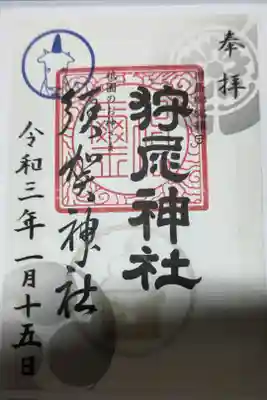 奉拝
狩尾神社
須賀神社
令和三年一月十五日